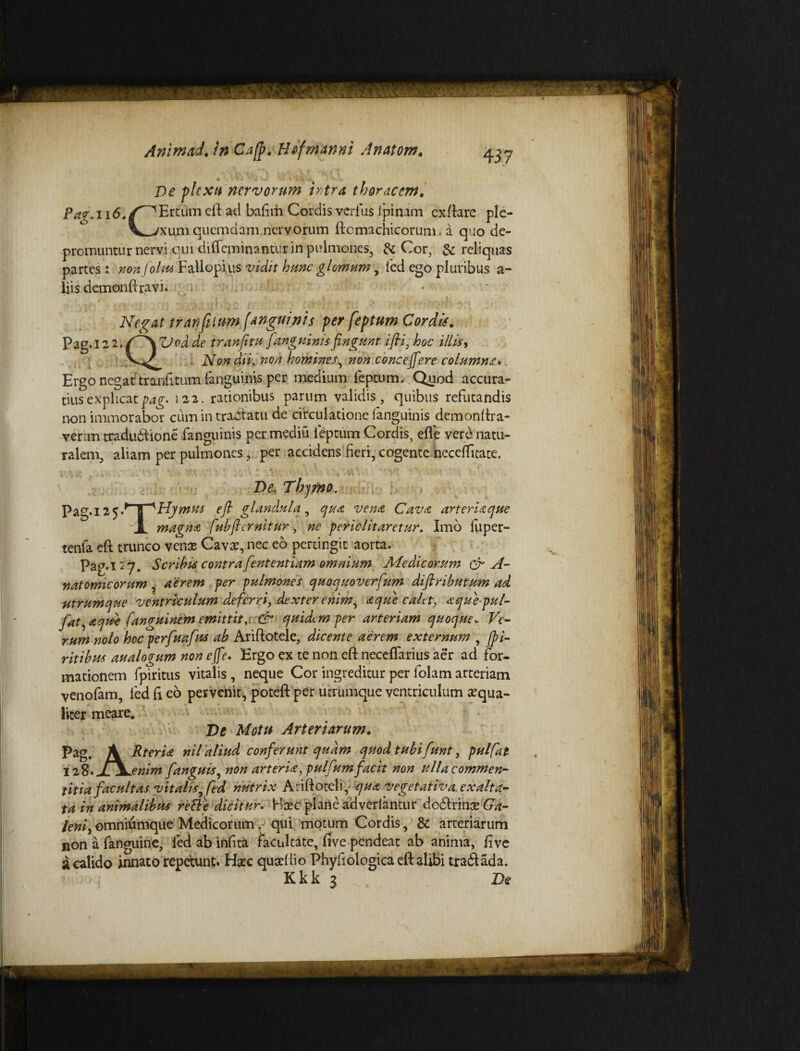 Animad. in Casp. Hofmanni Anatom. 437
De plexu nervorum intra thoracem.
Pag. 116. CErtum est ad basim Cordis versus spinam exstare ple-
xum quemdam nervorum stomachicorum, à quo de-
promuntur nervi qui disseminantur in pulmones, & Cor, & reliquas
partes: non solus Fallopius vidit hunc glomum, sed ego pluribus a-
liis demonstravi.
Negat transitum sanguinis per septum Cordis.
Pag. 122. QVod de transitu sanguinis fingunt isti, hoc illis,
Non dii, non homines, non concessere columnæ.
Ergo negat transitum sanguinis per medium septum. Quod accura-
tius explicat pag. 122. rationibus parum validis, quibus refutandis
non immorabor cùm in tractatu de circulatione sanguinis demonstra-
verim traductionē sanguinis per mediū septum Cordis, esse verè natu-
ralem, aliam per pulmones, per accidens fieri, cogente necessitate.
De Thymo.
Pag. 125. THymus est glandula, quæ venæ Cavæ arteriæque
magnæ substernitur, ne periclitaretur. Imò super-
tensa est trunco venæ Cavæ, nec eò pertingit aorta.
Pag. 127. Scribis contra sententiam omnium Medicorum & A-
natomicorum, aërem per pulmones quoquoversum distributum ad
utrumque ventriculum deferri, dexter enim, æquè calet, æquè pul-
sat, æquè sanguinem emittit, & quidem per arteriam quoque. Ve-
rum nolo hoc perfusus ab Aristotele, dicente aërem externum, spi-
ritibus aualogum non esse. Ergo ex te non est necessarius aër ad for-
mationem spiritus vitalis, neque Cor ingreditur per solam arteriam
venosam, sed si eò pervenit, potest per utrumque ventriculum æqua-
liter meare.
De Motu Arteriarum.
Pag. ARteriæ nil aliud conferunt quàm quod tubi sunt, pulsat
128. enim sanguis, non arteriæ, pulsum facit non ulla commen-
titia facultas vitalis, sed nutrix Aristoteli, quæ vegetativa, exalta-
ta in animalibus rectè dicitur. Hæc planè adversantur doctrinæ Ga-
leni, omniúmque Medicorum, qui motum Cordis, & arteriarum
non à sanguine, sed ab insita facultate, sive pendeat ab anima, sive
à calido innato repetunt. Hæc quæstio Physiologica est alibi tractada.
Kkk 3 De